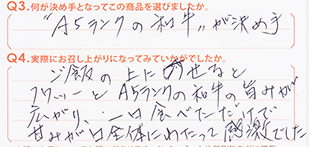 Q3.何が決め手となってこの商品を選びましたか。
"A5ランクの和牛"が決め手
Q4.実際にお召し上がりになってみていかがでしたか。
ご飯の上にのせると
フワァーとA5ランクの和牛の旨みが
広がり、一口食べただけで
甘みが口全体にわたって感激でした